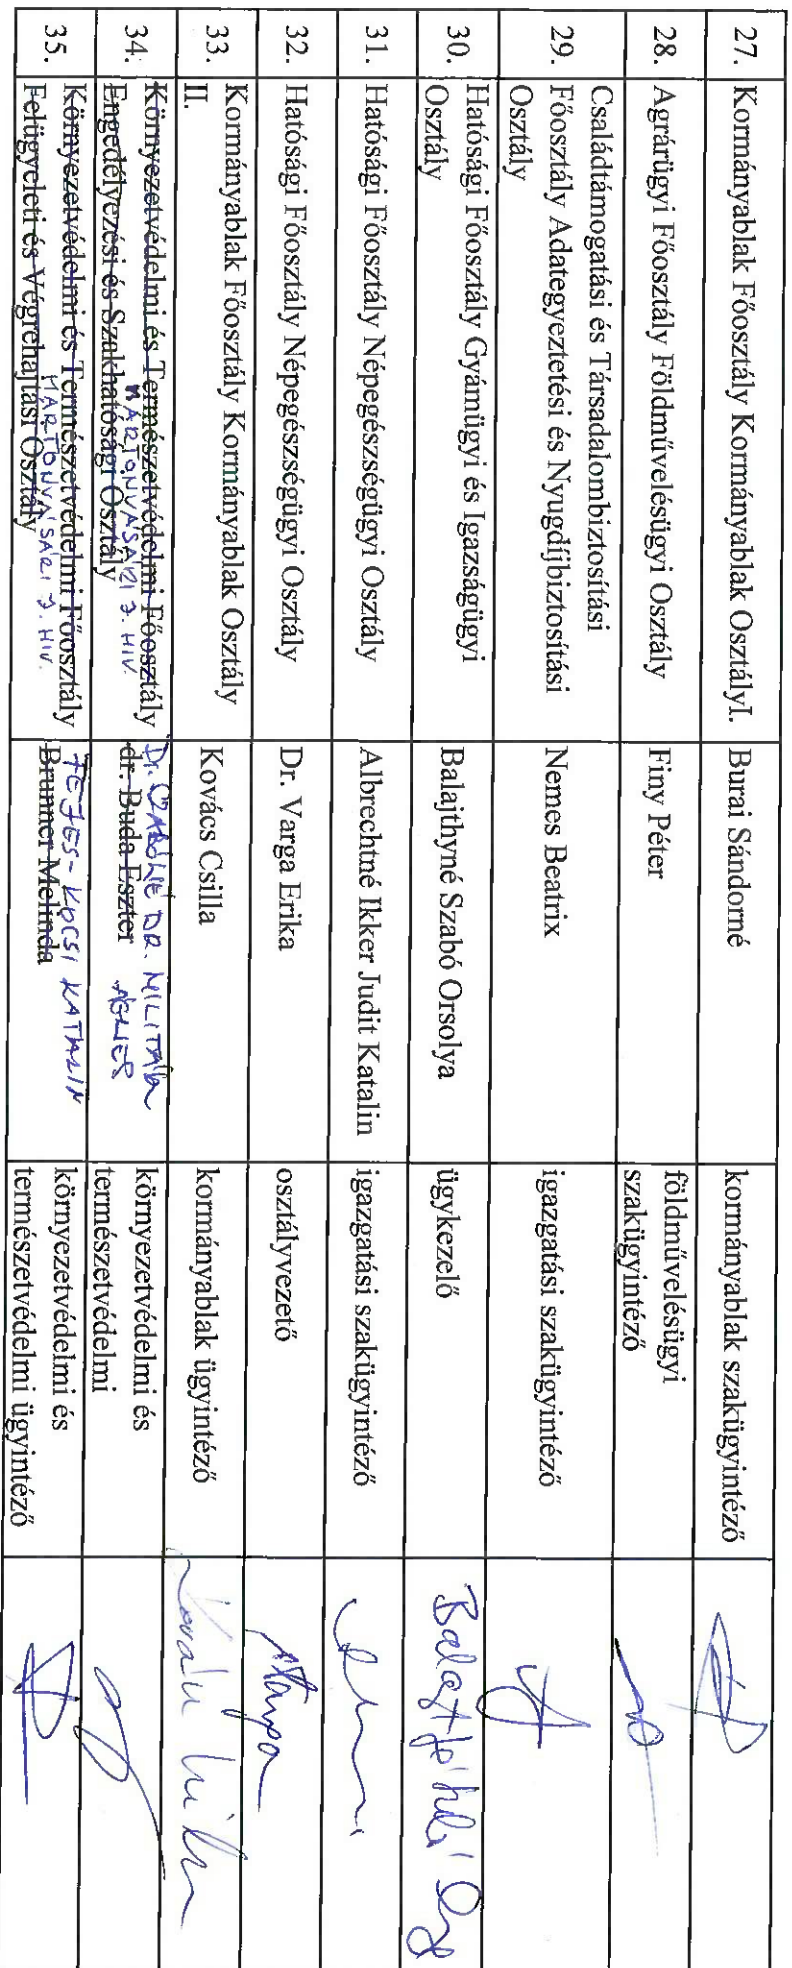 27. Kormányablak Főosztály Kormányablak OsztályI. Burai Sándorné kormányablak szakügyintéző
28. Agrárügyi Főosztály Földművelésügyi Osztály Finy Péter földművelésügyi
szakügyintéző
29. Családtámogatási és Társadalombiztosítási
Főosztály Adategyeztetési és Nyugdíjbiztosítási
Osztály Nemes Beatrix igazgatási szakügyintéző
30. Hatósági Főosztály Gyámügyi és Igazságügyi
Osztály Balajthyné Szabó Orsolya ügykezelő
31. Hatósági Főosztály Népegészségügyi Osztály Albrechtné Ikker Judit Katalin igazgatási szakügyintéző
32. Hatósági Főosztály Népegészségügyi Osztály Dr. Varga Erika osztályvezető
33. Kormányablak Főosztály Kormányablak Osztály
II. Kovács Csilla kormányablak ügyintéző
34. Környezetvédelmi és Természetvédelmi Főosztály
Engedélyezési és Szakhatósági Osztály
MÁRTONVÁSÁRI J. HIV.
DR.
dr. Buda Eszter
környezetvédelmi és
természetvédelmi
35. Környezetvédelmi és Természetvédelmi Főosztály
Felügyeleti és Végrehajtási Osztály
MARTONVÁSÁRI J. HIV.
FEJES-KOCSI KATALIN
Brunner Melinda
környezetvédelmi és
természetvédelmi ügyintéző